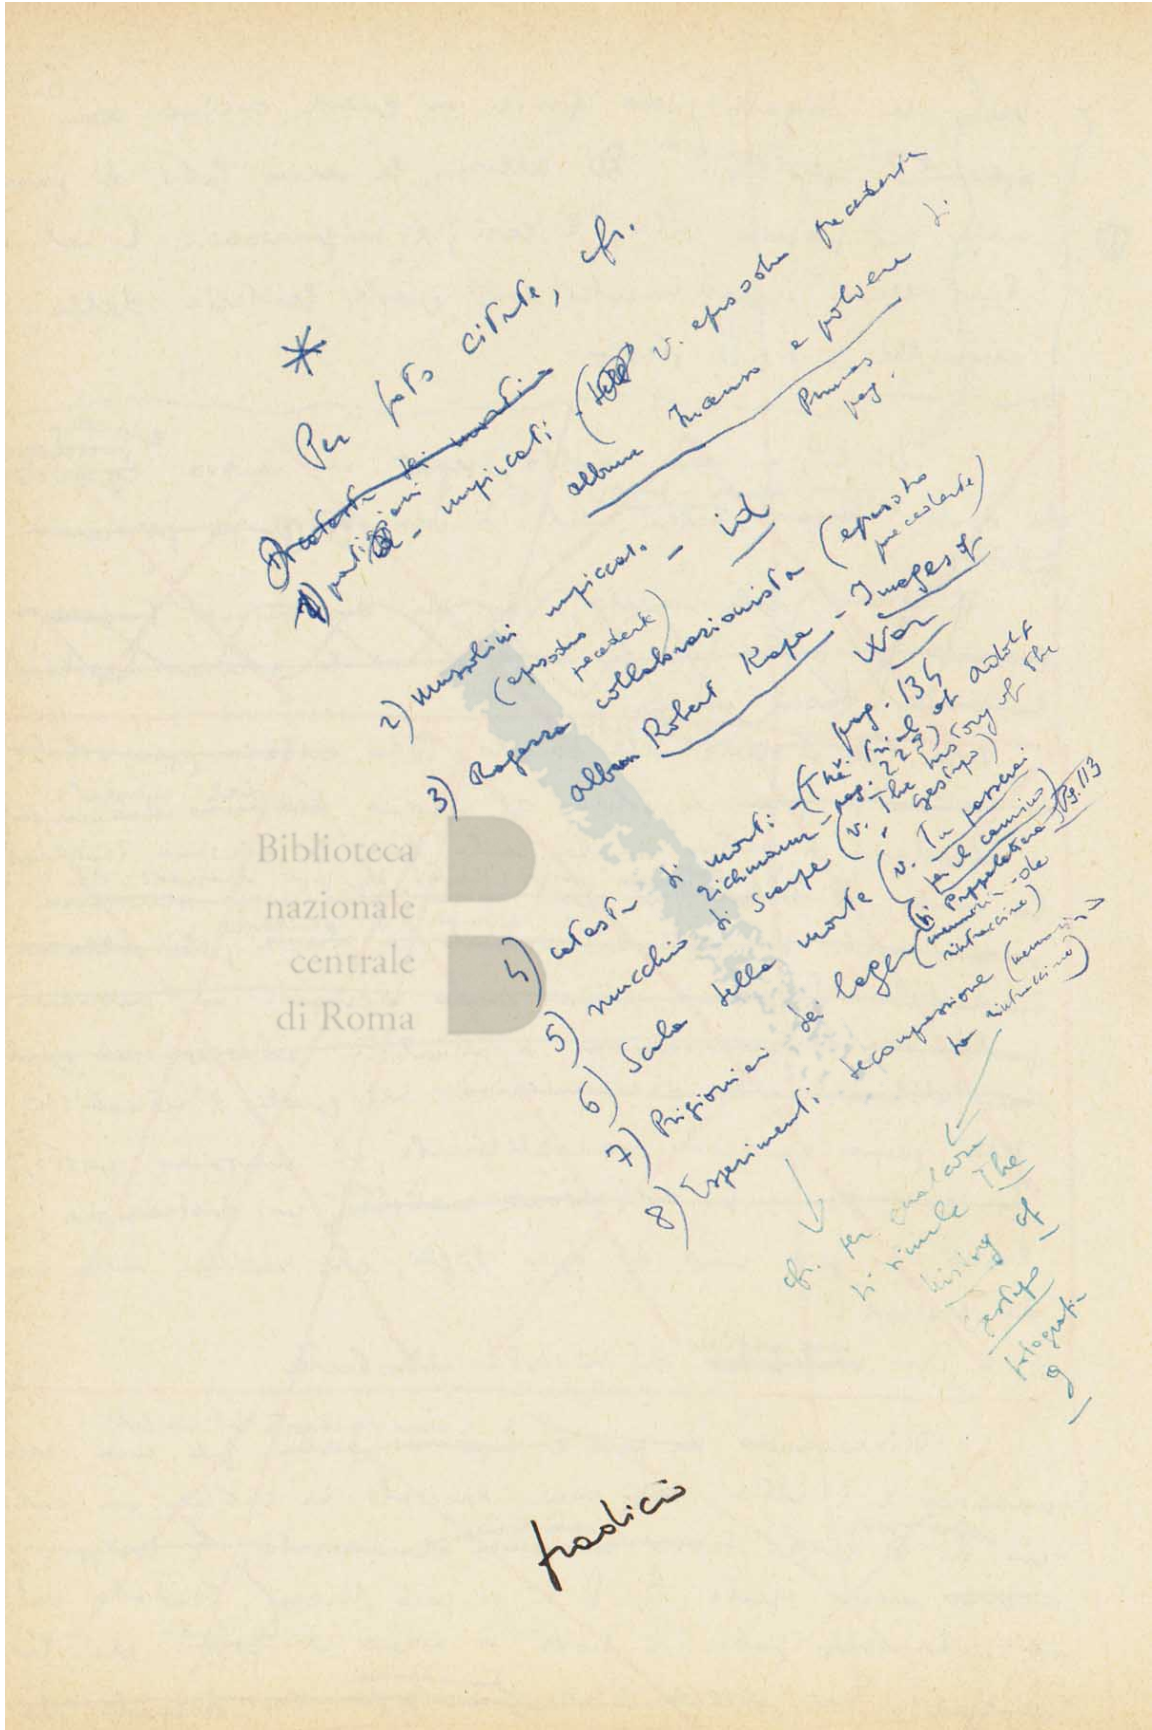 *
Per foto citate, cfr.
1) partigiani impiccati (v. episodio precedente
album Incenso e polvere di
Primas
pag.
2) Mussolini impiccato — id
(episodio
precedente)
3) Ragazza collaborazionista (episodio
precedente)
album Robert Kapa - Images of
War
pag. 134
4) catasta di morti - (The trial of Adolf
Eichmann - pag. 225)
5) mucchio di scarpe (v. The history of the
gestapo)
6) Scala della morte (v. Tu passerai
per il camino)
di Pappalettera pag. 113
7) Prigionieri dei lager (memoria - da
rintracciare)
8) Esperimenti decompressione (memoria
da rintracciare)
cfr. per
di simile The
history of
gestapo
fotografia
9
Biblioteca
nazionale
centrale
di Roma